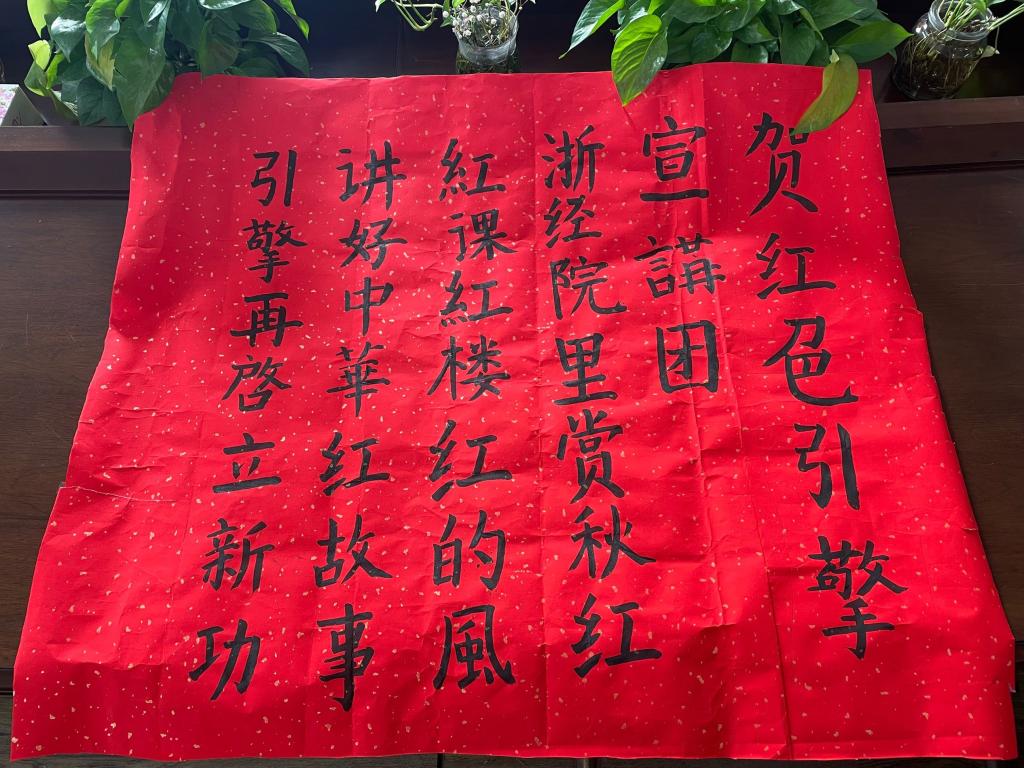 贺红色引擎
宣講团
浙经院里赏秋红
紅课紅楼红的風
讲好中華红故事
引擎再啓立新功